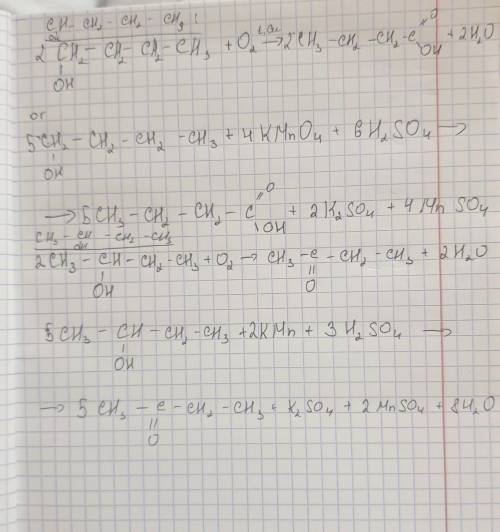 CH - CH2 - CH2 - CH3 :
OH
2 CH2 - CH2 - CH2 - CH3 + O2 → 2CH3 - CH2 - CH2 - C =O OH + 2H2O
OH
or
5CH2 - CH2 - CH2 - CH3 + 4KMnO4 + 6H2SO4 →
OH
→ 5CH3 - CH2 - CH2 - C =O OH + 2K2SO4 + 4MnSO4
CH3 - CH - CH2 - CH3
OH
2CH3 - CH - CH2 - CH3 + O2 → CH3 - C - CH2 - CH3 + 2H2O
OH O
5CH3 - CH - CH2 - CH3 + 2KMn + 3H2SO4 →
OH
→ 5CH3 - C - CH2 - CH3 + K2SO4 + 2MnSO4 + 8H2O
O